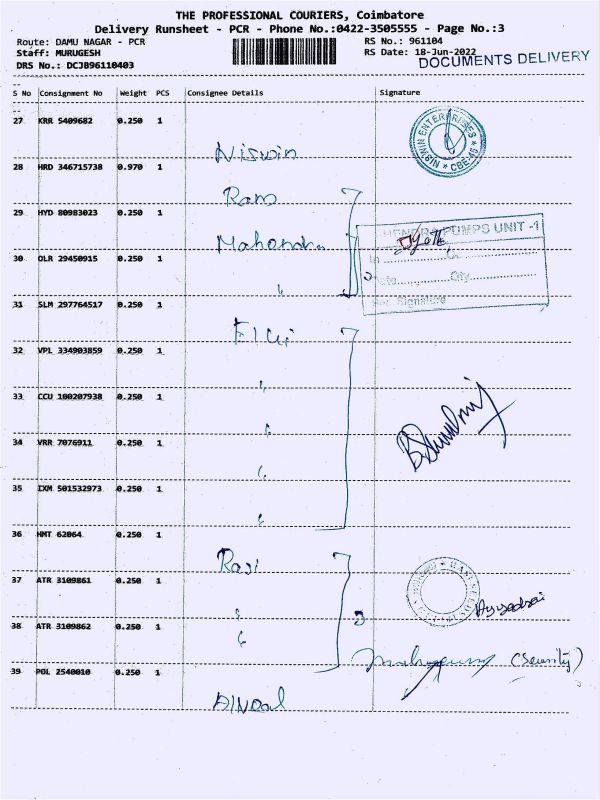 THE PROFESSIONAL COURIERS, Coimbatore
Delivery Runsheet - PCR - Phone No.:0422-3505555 - Page No.:3
Route: DAMU NAGAR - PCR
RS No.: 961104
Staff: MURUGESH
RS Date: 18-Jun-2022
DRS No.: DCJB96110403
DOCUMENTS DELIVERY
S No Consignment No Weight PCS Consignee Details Signature
27 KRR 5409682 0.250 1
NISWIN ENTERPRISES * CBE-45 *
Niswin
28 HRD 346715738 0.970 1
Ram
29 HYD 80983023 0.250 1
PUMPS UNIT -1
Mahendra
30 OLR 29450915 0.250 1
City
31 SLM 297764517 0.250 1
Signature
Elgi
32 VPL 334903859 0.250 1
33 CCU 100207938 0.250 1
34 VRR 7076911 0.250 1
35 IXM 501532973 0.250 1
36 HMT 62064 0.250 1
Rasi
37 ATR 3109861 0.250 1
38 ATR 3109862 0.250 1
(Security)
39 POL 2540010 0.250 1